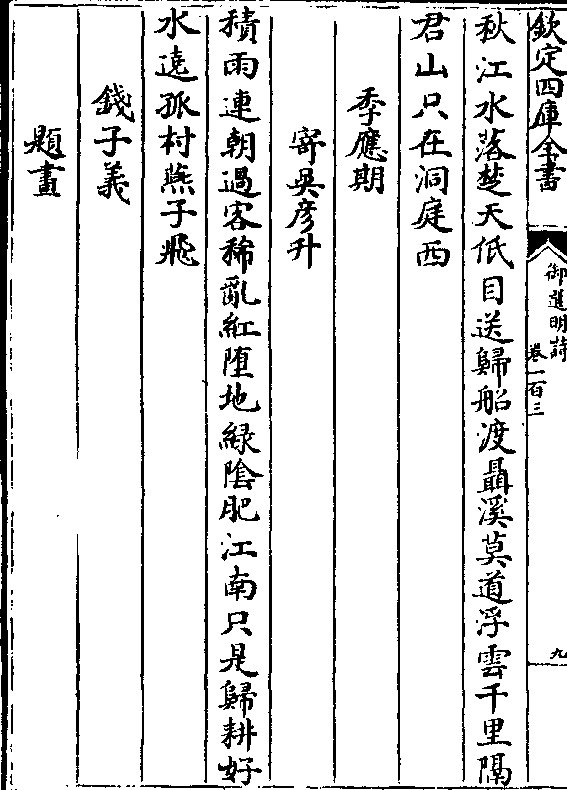 欽定四庫全書
御選明詩
卷一百三
九
秋江水落楚天低目送歸船渡聶溪莫道浮雲千里隔
君山只在洞庭西
季應期
寄吳彦升
積雨連朝過客稀亂紅墮地緑陰肥江南只是歸耕好
水遠孤村燕子飛
錢子義
題畫